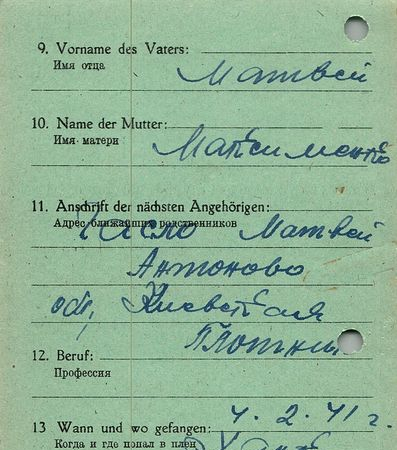 9. Vorname des Vaters:
Имя отца
Матвей
10. Name der Mutter:
Имя матери
Максименко
11. Anschrift der nächsten Angehörigen:
Адрес ближайших родственников
Матвей
Антоново
обл. Киевская
12. Beruf:
Плотник
Профессия
13 Wann und wo gefangen:
Когда и где попал в плен